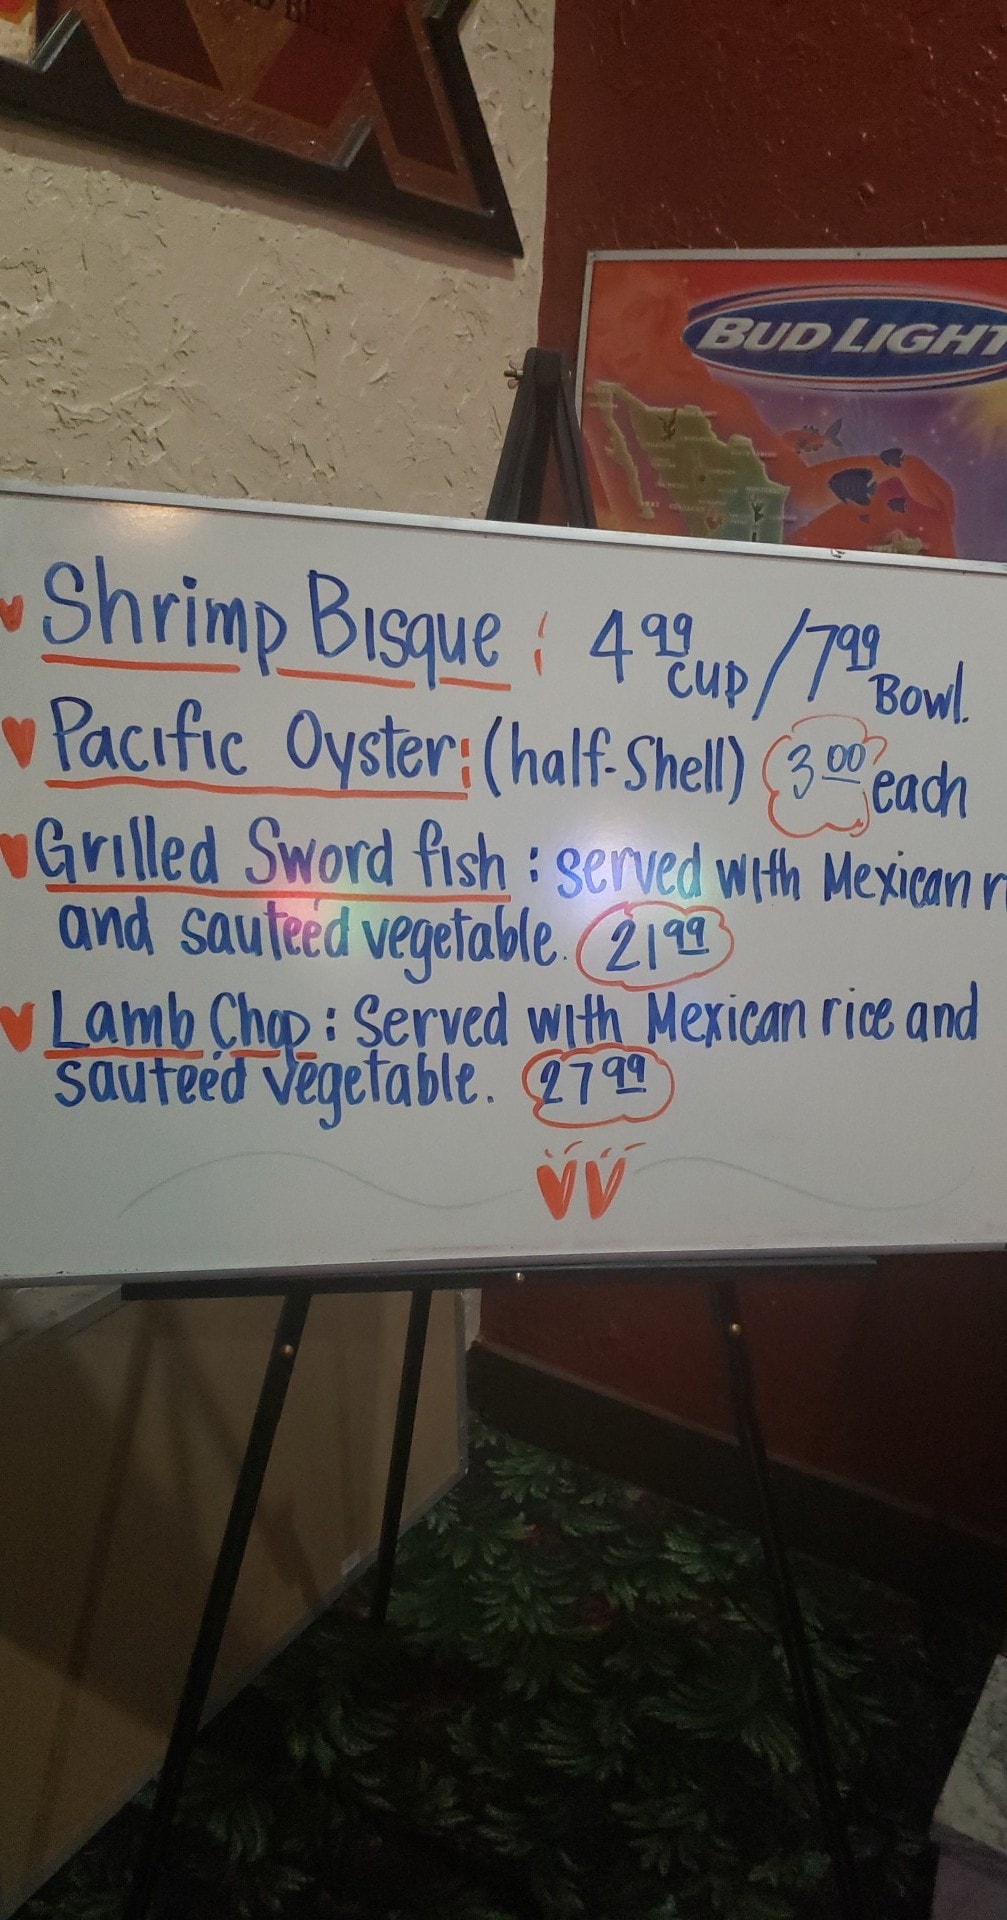 BUD LIGHT
Shrimp Bisque : 4 99 cup / 7 99 Bowl.
Pacific Oyster: (half-Shell) 3 00 each
Grilled Sword fish : served with Mexican r
and sauteed vegetable. 21 99
Lamb Chop : Served with Mexican rice and
sauteed vegetable. 27 99